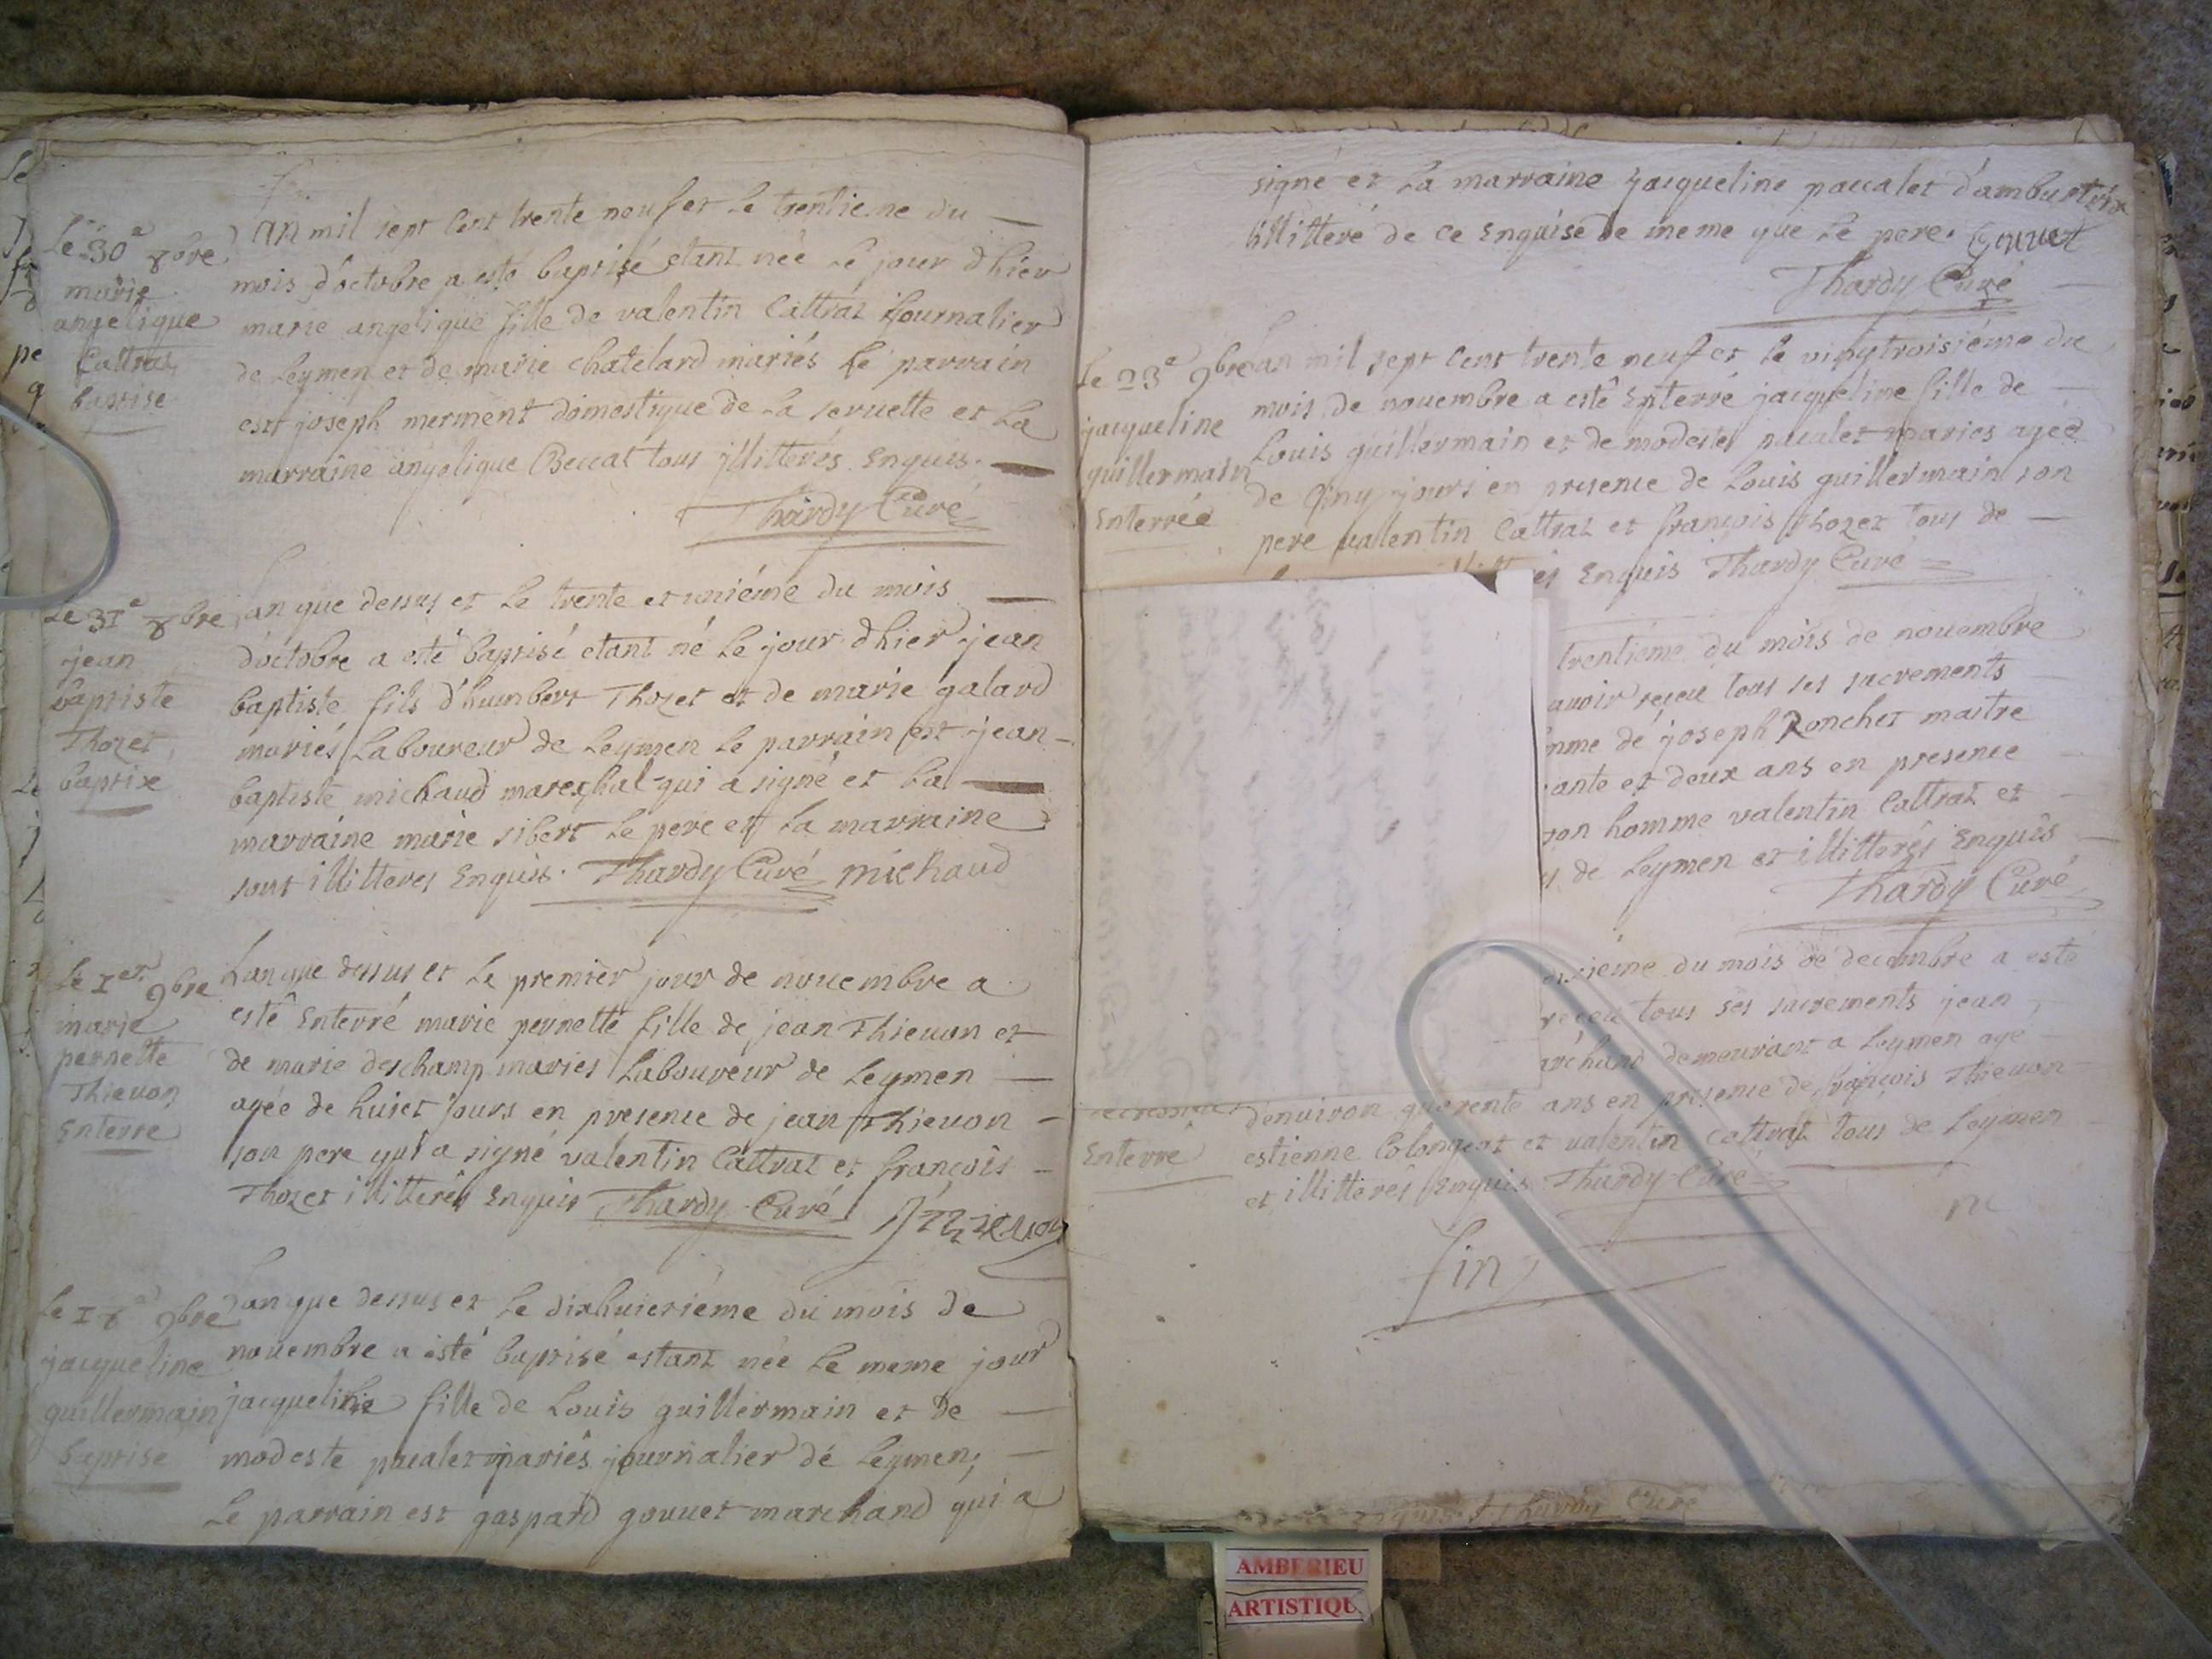 Le 30e 8bre
marie
angelique
Cattrat
baptise
Lan mil sept Cent trente neuf et Le trentieme du
mois d'octobre a esté baptisé etant née Le jour dhier
marie angelique fille de valentin Cattrat journalier
de Leymen et de marie chatelard mariés Le parrain
est joseph merment domestique de La seruette et La
marraine angelique Beccat tous jllitterés Enquis.
Thardy Curé
Le 31e 8bre
jean
baptiste
Thozet
baptise
Lan que dessus et Le trente et uniéme du mois
d'octobre a esté baptisé etant né Le jour dhier jean
baptiste fils d'humbert Thozet et de marie galard
mariés Laboureur de Leymen Le parrain est jean
baptiste michaud mareschal qui a signé et La
marraine marie sibert Le pere et La marraine
sont illitteres Enquis. Thardy Curé michaud
Le 1er 9bre
marie
pernette
Thieuon
Enterre
Lan que dessus et Le premier jour de nouembre a
esté Enterré marie pernette fille de jean Thieuon et
de marie deschamp maries Laboureur de Leymen
agée de huict jours en presence de jean Thieuon
son pere qui a signé valentin Cattrat et françois
Thozet illitterés Enquis Thardy Curé
Le 18e 9bre
jacqueline
guillermain
baptise
Lan que dessus et Le dixhuictiéme du mois de
nouembre a esté baptisé estant née Le meme jour
jacqueline fille de Louis guillermain et de
modeste pacalet mariés journalier de Leymen;
Le parrain est gaspard gouuet marchand qui a
signé et La marraine jacqueline paccalet
illitteré de ce Enquise de meme que Le pere. Gouuet
Thardy Curé
Le 23e 9bre
jacqueline
guillermain
Enterrée
Lan mil sept Cent trente neuf et Le vingtroisiéme du
mois de nouembre a esté Enterré jacqueline fille de
Louis guillermain et de modeste pacalet maries agée
de Cinq jours en presence de Louis guillermain son
pere valentin Cattrat et françois Thozet tous de
Enquis Thardy Curé
trentiéme du mois de nouembre
auoir reçeu tous ses sacrements
de joseph Ronchet maitre
et deux ans en presence
son homme valentin Cattrat et
de Leymen et illitterés Enquis
Thardy Curé
du mois de decembre a esté
reçeu tous ses sacrements jean
demeurant a Leymen agé
Enterré
denuiron quarente ans en presence de françois Thieuon
estienne Colongeat et valentin Cattrat tous de Leymen
et illitterés Enquis Thardy Curé
fin
Thardy Curé
AMBERIEU
ARTISTIQU